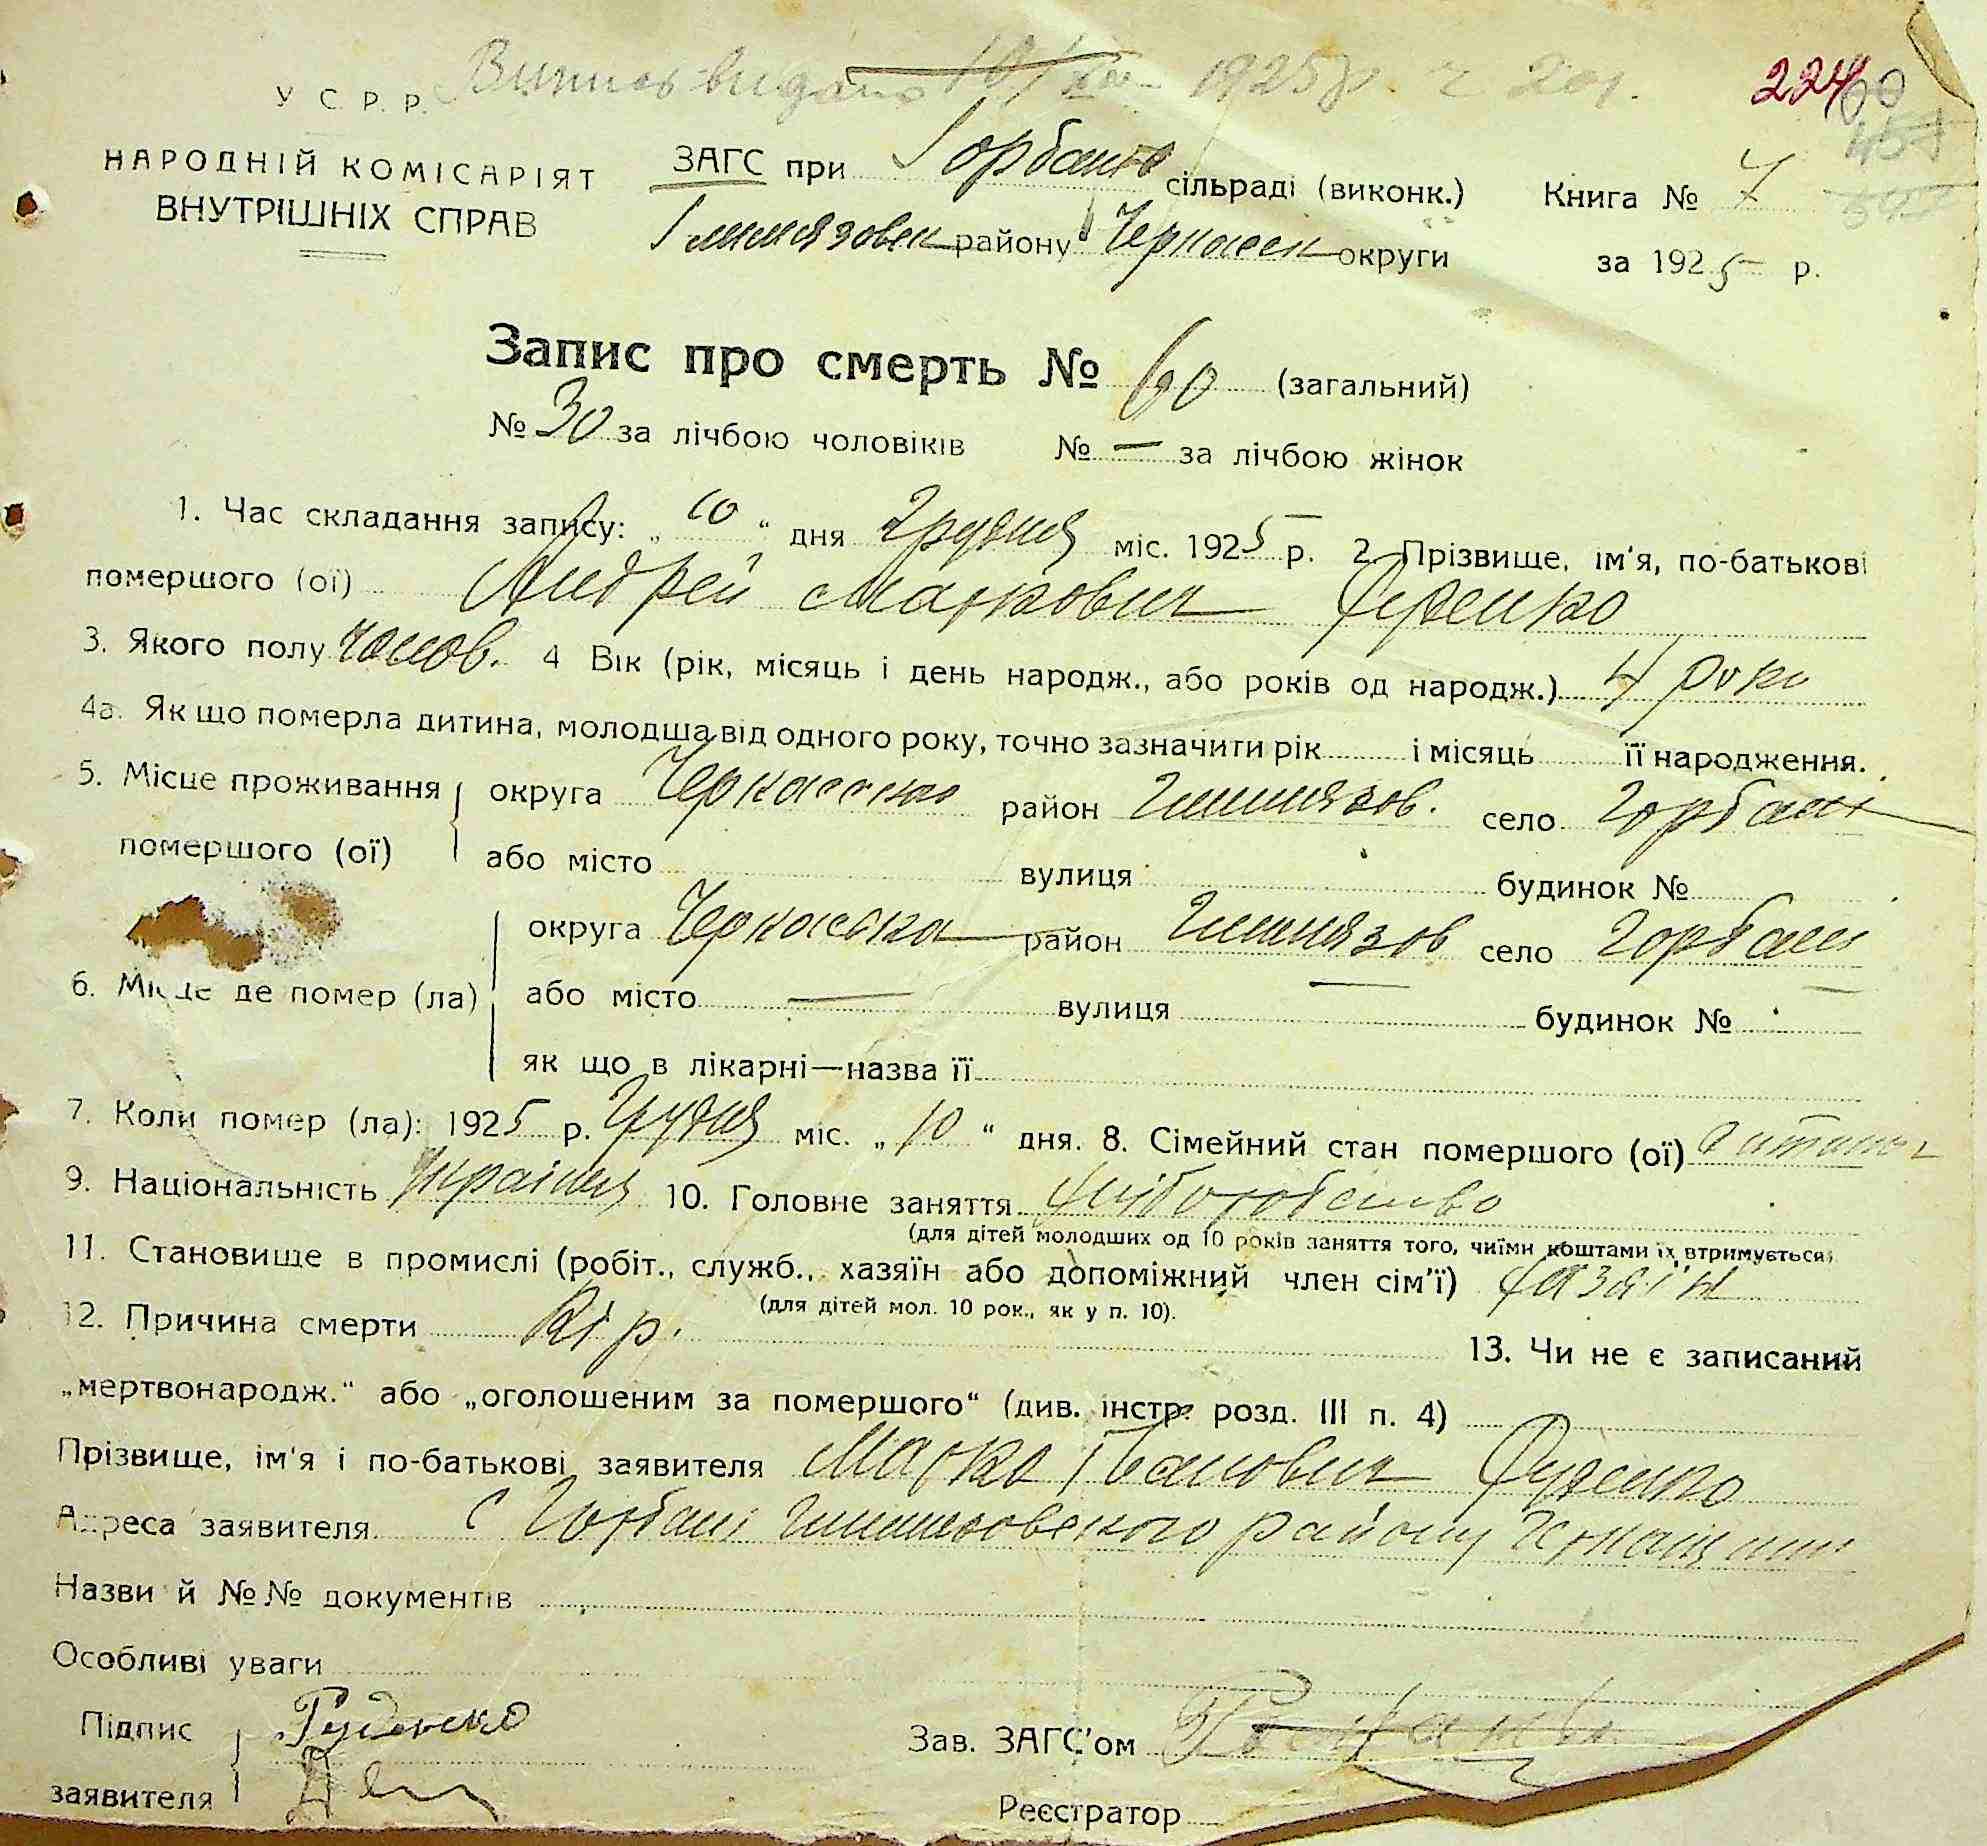 Випис видано 10/XII 1925 р. ч 201.
224
У С. Р. Р.
НАРОДНІЙ КОМІСАРІЯТ
ВНУТРІШНІХ СПРАВ
ЗАГС при Горбані сільраді (виконк.) Книга № 7
Гельмязовск району Черкаськ округи за 1925 р.
Запис про смерть № 60 (загальний)
№ 30 за лічбою чоловіків № — за лічбою жінок
1. Час складання запису: „10“ дня Грудня міс. 1925 р. 2 Прізвище, ім'я, по-батькові
помершого (ої) Андрей Маркович Руденко
3. Якого полу чолов. 4 Вік (рік, місяць і день народж., або років од народж.) 4 роки
4а. Як що померла дитина, молодша від одного року, точно зазначити рік і місяць її народження.
5. Місце проживання округа Черкасска район село Горбані
помершого (ої) або місто вулиця будинок №
округа Черкаська район село Горбані
6. Місце де помер (ла) або місто — вулиця — будинок №
як що в лікарні—назва її
7. Коли помер (ла): 1925 р. Грудня міс. „10“ дня. 8. Сімейний стан помершого (ої) дитина
9. Національність Українец 10. Головне заняття хліборобство
(для дітей молодших од 10 років заняття того, чиїми коштами їх втримується)
11. Становище в промислі (робіт., служб., хазяїн або допоміжний член сім'ї) хазяїн
(для дітей мол. 10 рок., як у п. 10).
12. Причина смерти Кір. 13. Чи не є записаний
„мертвонародж.“ або „оголошеним за помершого“ (див. інстр. розд. III п. 4)
Прізвище, ім'я і по-батькові заявителя Марко Іванович Руденко
Адреса заявителя с Горбані району
Назви й №№ документів
Особливі уваги
Підпис Руденко
заявителя
Зав. ЗАГС'ом
Реєстратор